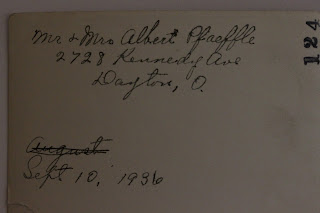 Mr & Mrs Albert Pfaeffle
2728 Kennedy Ave
Dayton, O.
124
August
Sept 10, 1936